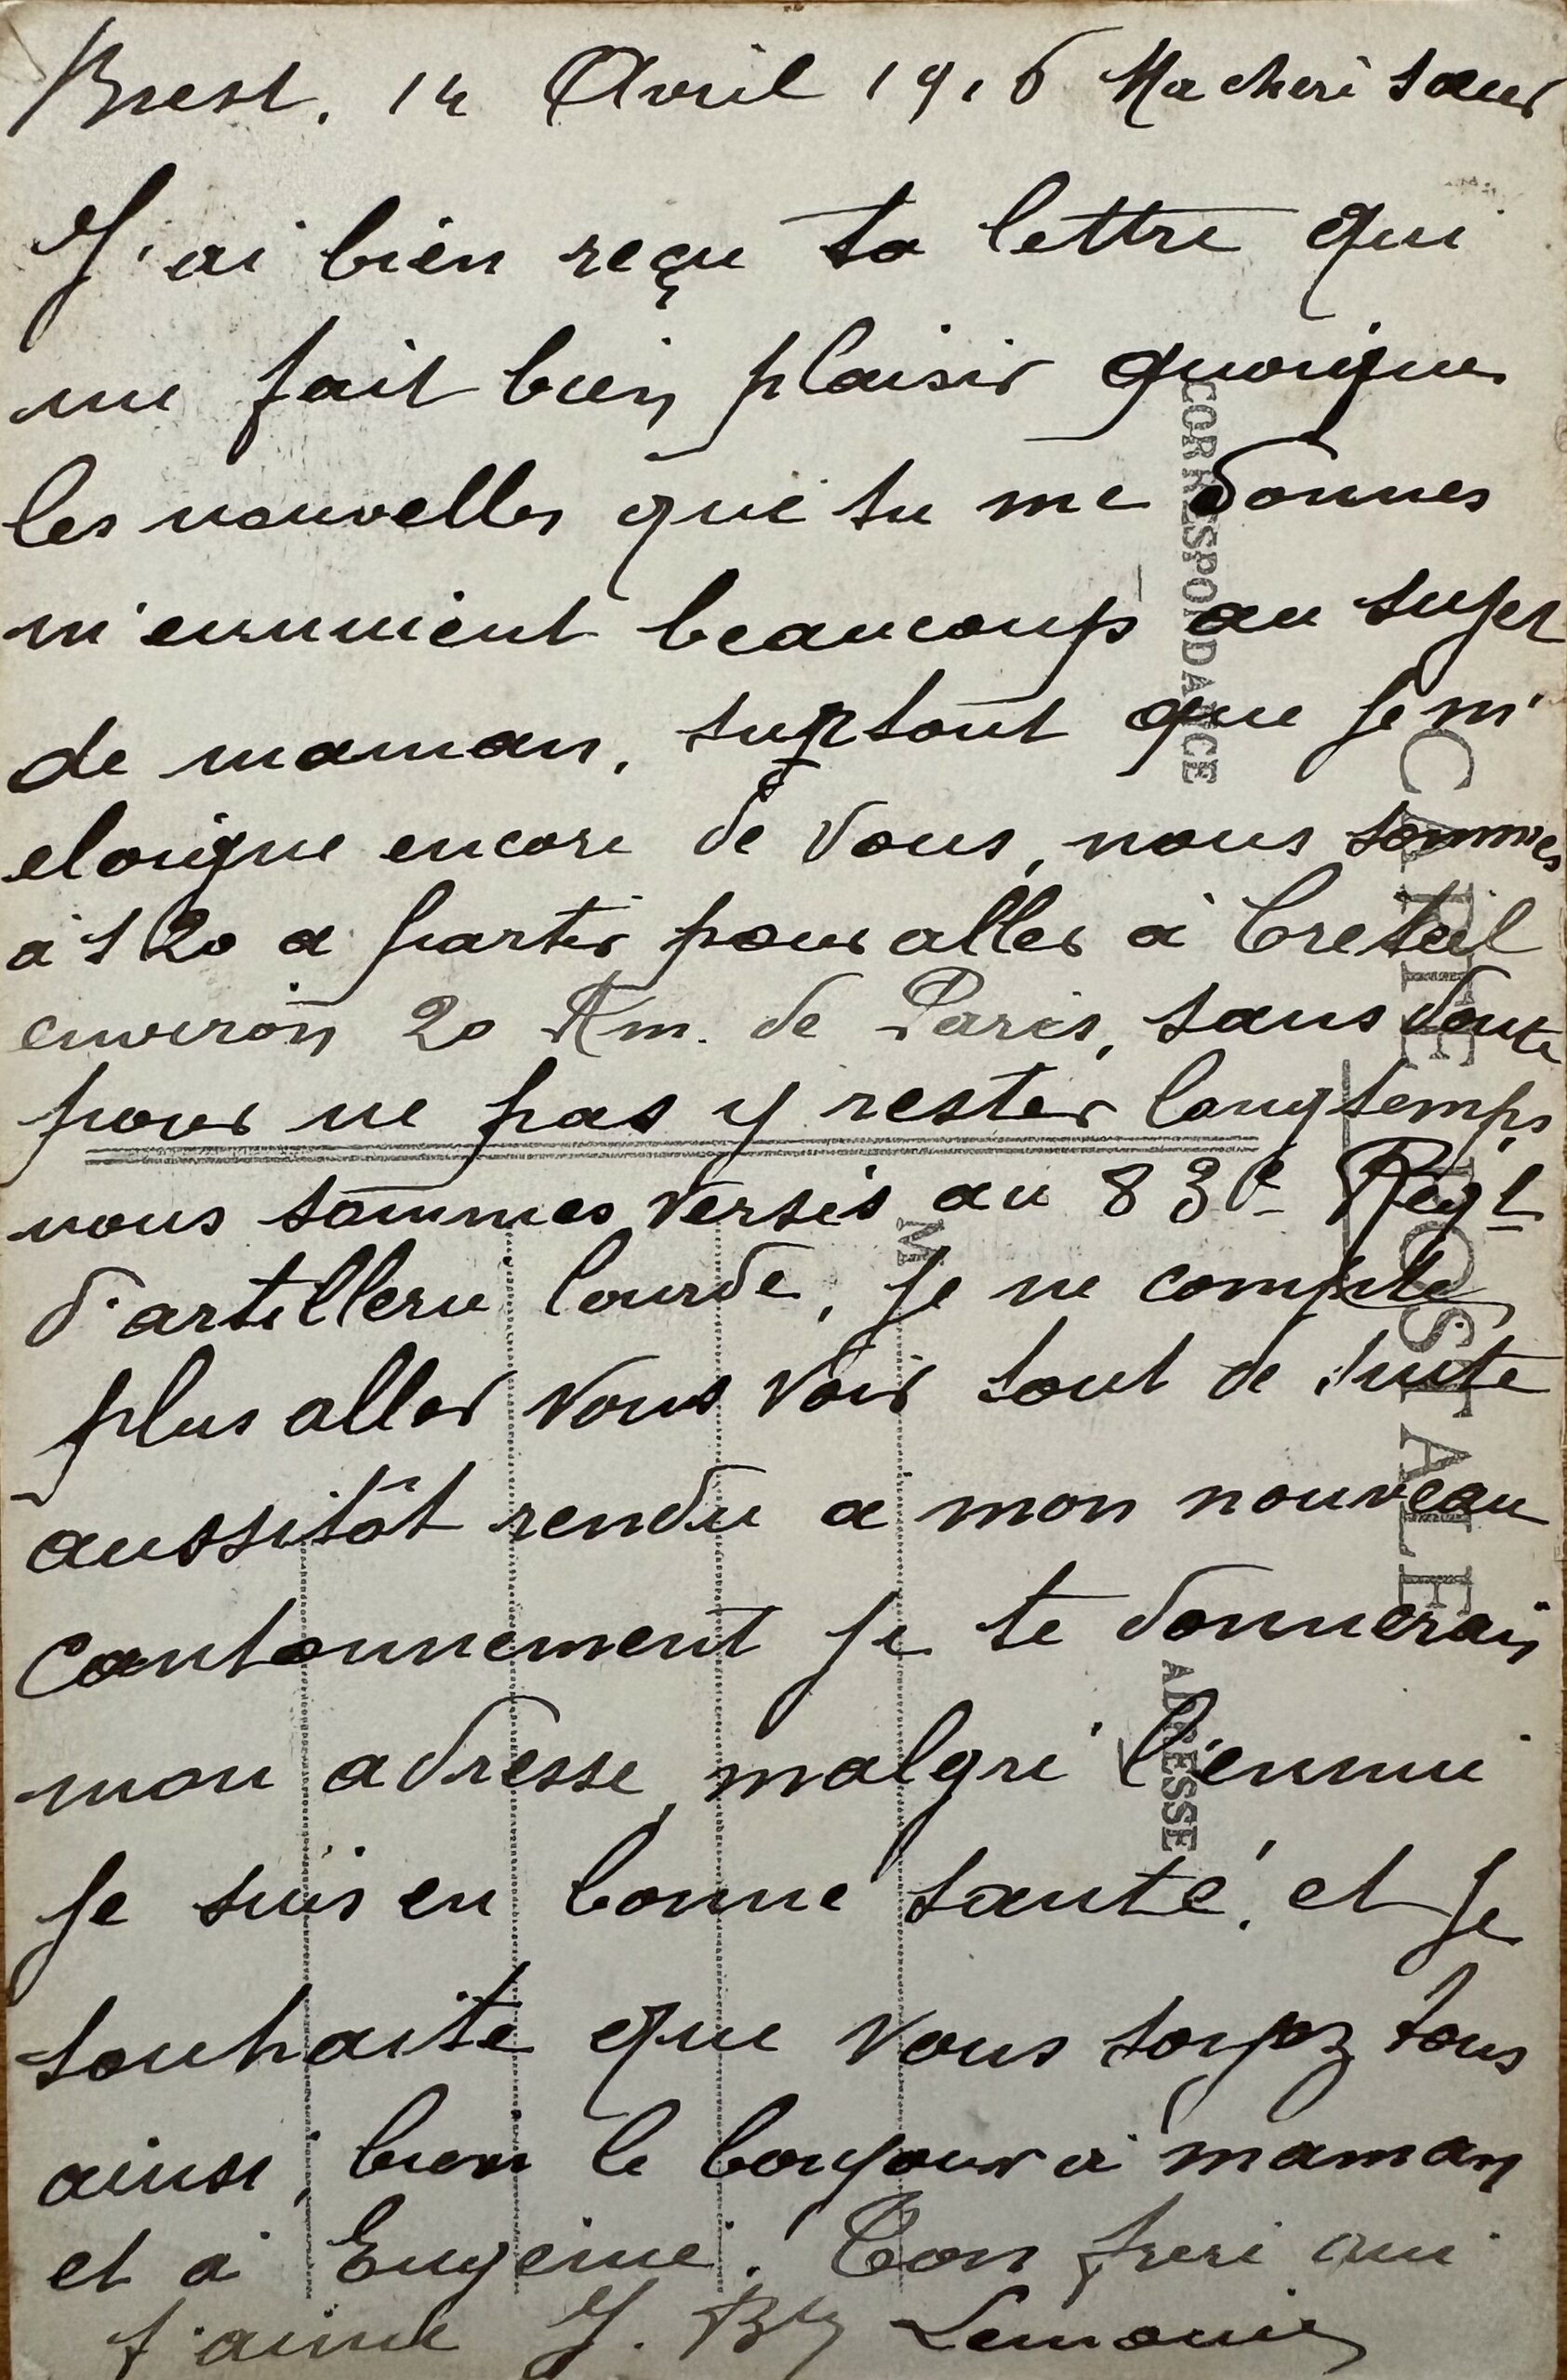 Brest, 14 Avril 1916 Ma cheri sœur
J'ai bien reçu ta lettre qui
me fait bien plaisir quoique
les nouvelles que tu me donnes
m'ennuient beaucoup au sujet
de maman, surtout que je m'
eloigne encore de vous, nous sommes
à 120 a partir pour aller à Creteil
environ 20 Km. de Paris, sans doute
pour ne pas y rester longtemps
nous sommes versés au 83e Regt
d'artillerie lourde, je ne compte
plus aller vous voir tout de suite
aussitôt rendu a mon nouveau
cantonnement je te donnerais
mon adresse, malgré l'ennui
je suis en bonne santé, et je
souhaite que vous soyez tous
ainsi, bien le bonjour à maman
et à Eugenie. Ton frere qui
t'aime J. Bte Lemoine
CARTE POSTALE
CORRESPONDANCE
ADRESSE
M